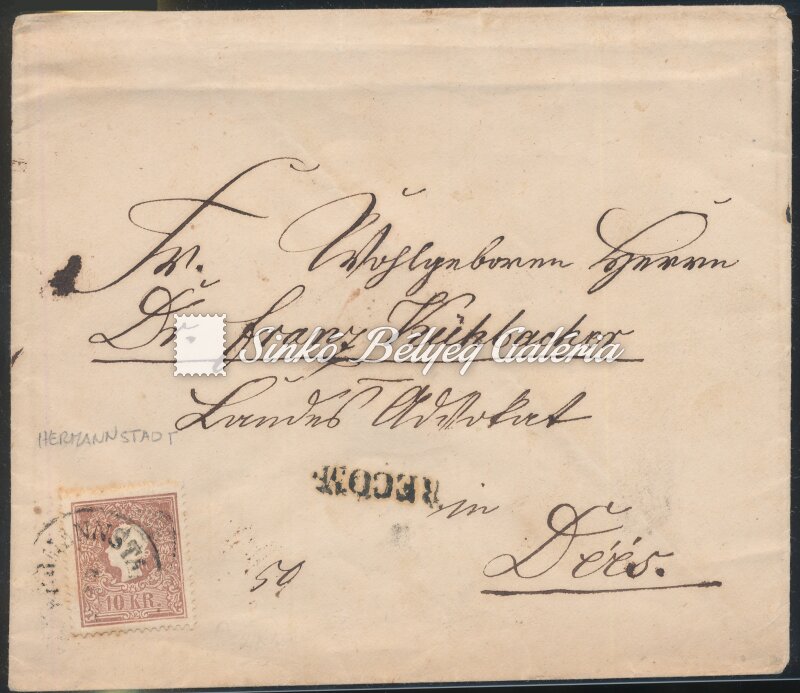 Sr. Wohlgeboren Herrn
Dr. Franz
Sinkó Bélyeg Galéria
Landes Advokat
HERMANNSTADT
RECOM.
in
HERMANNSTADT
Déés.
10 KR.
50